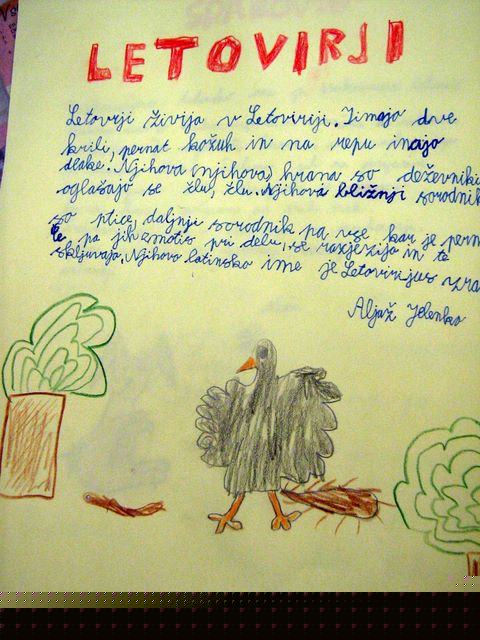 LETOVIRJI
Letovirji živijo v Letoviriji. Imajo dve
krili, pernat kožuh in na repu imajo
dlake! Njihova (njihova) hrana so deževniki
oglašajo se žlu, žlu. Njihovi bližnji sorodnik
so ptice, daljnji sorodnik pa vse kar je pern
Če pa jih zmotiš pri delu, se razjezijo in te
skljuvajo. Njihovo latinsko ime je Letovirijus
Aljaž Jelenko